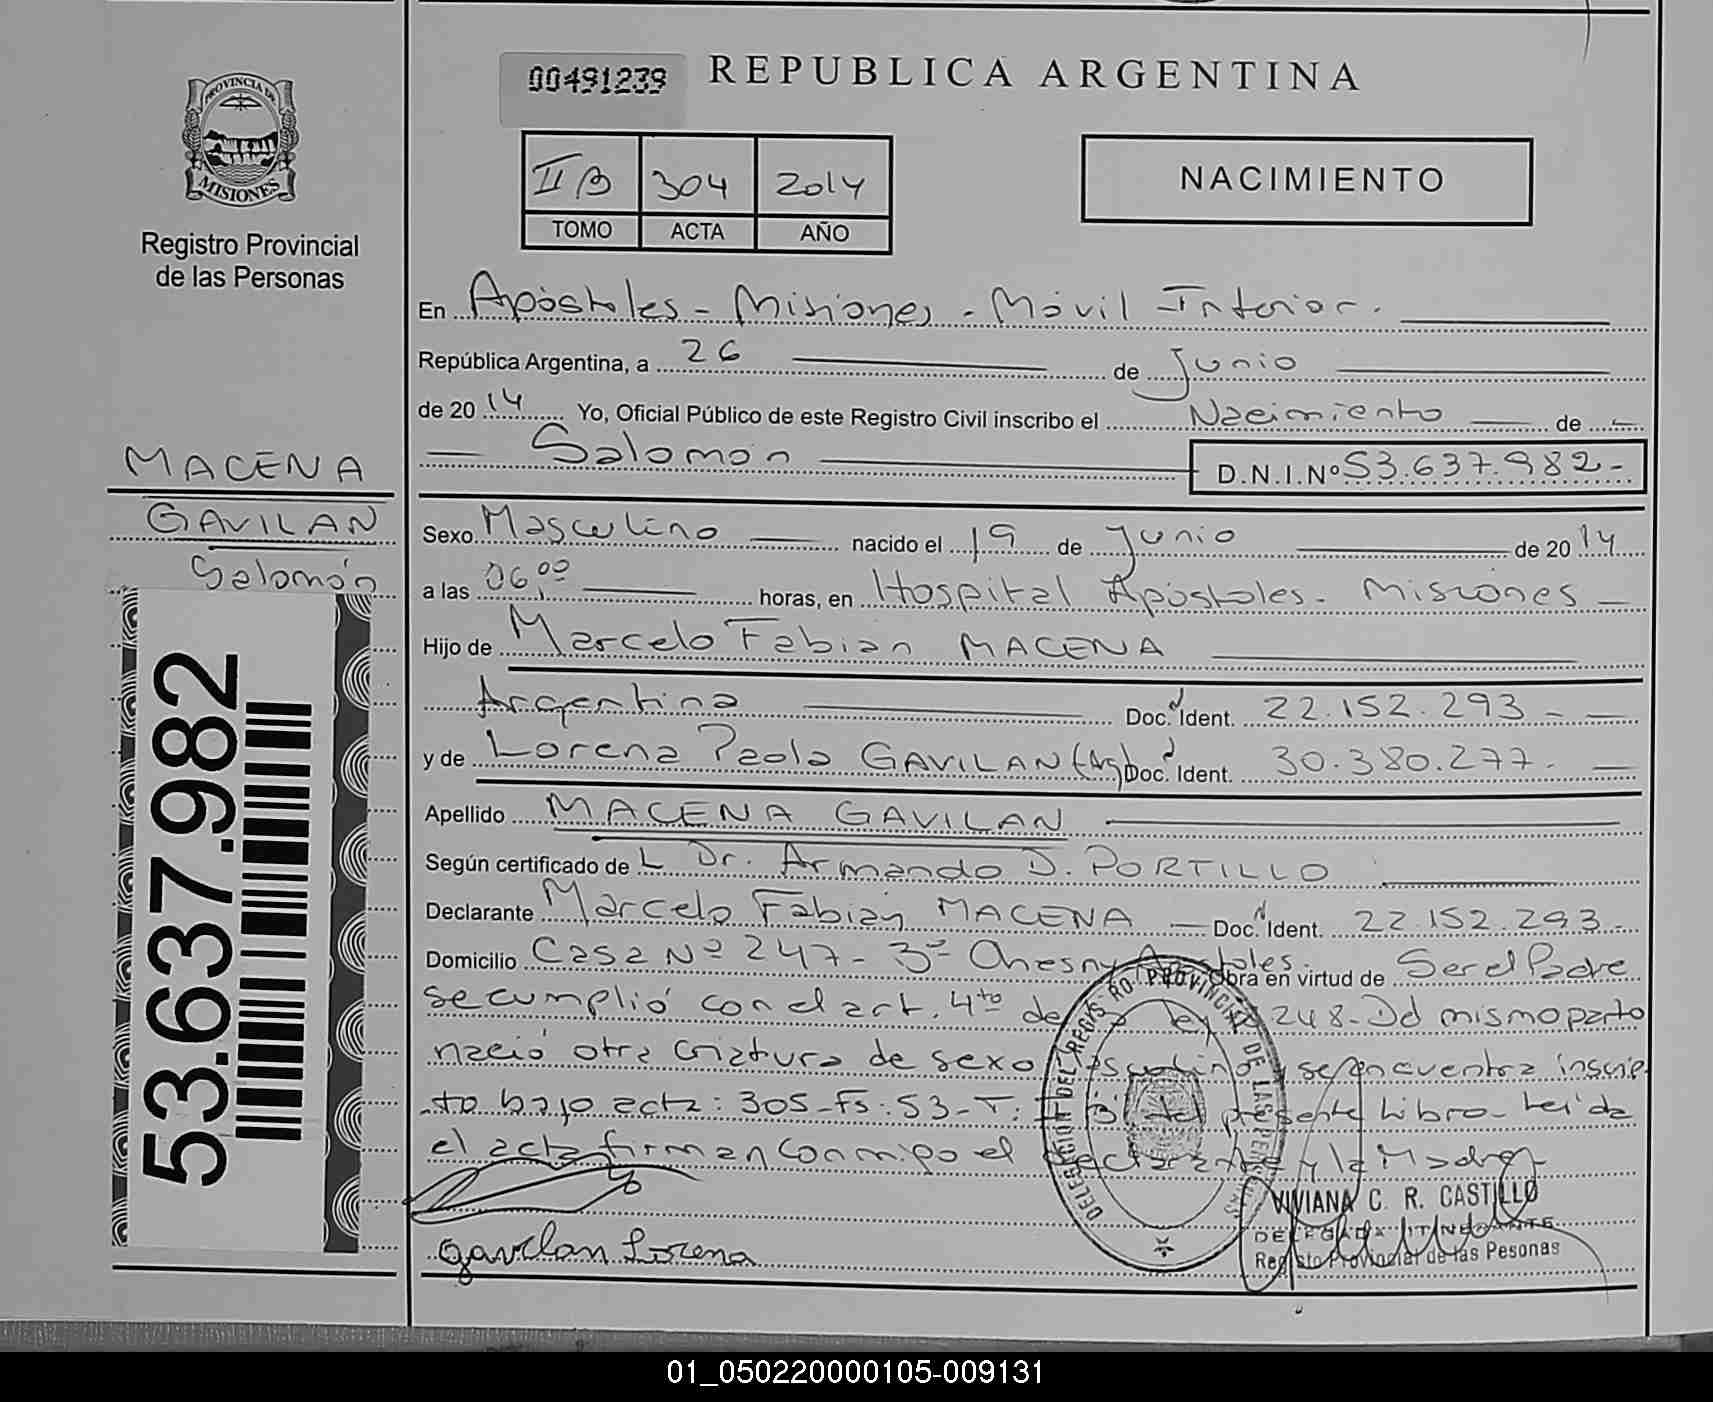 00491239 REPUBLICA ARGENTINA
PROVINCIA DE
MISIONES
Registro Provincial
de las Personas
II B 304 2014
TOMO ACTA AÑO
NACIMIENTO
En Apóstoles - Misiones - Móvil Interior.
República Argentina, a 26 de Junio
de 2014 Yo, Oficial Público de este Registro Civil inscribo el Nacimiento de
Salomón D.N.I.Nº 53.637.982-
MACENA
GAVILAN
Salomón
53.637.982
Sexo Masculino nacido el 19 de Junio de 2014
a las 06,00 horas, en Hospital Apóstoles - Misiones -
Hijo de Marcelo Fabian MACENA
Argentina Doc. Ident. 22.152.293 -
y de Lorena Paola GAVILAN (Arg) Doc. Ident. 30.380.277.
Apellido MACENA GAVILAN
Según certificado de L Dr. Armando D. PORTILLO
Declarante Marcelo Fabian MACENA - Doc. Ident. 22.152.293-
Domicilio Casa Nº 247- Apóstoles. Obra en virtud de Ser el Padre
se cumplió con el art. 4to de ley 248 - Del mismo parto
nació otra criatura de sexo masculino y se encuentra inscrip
-to bajo acta: 305-Fs: 53-T: del presente Libro - Leida
el acta firman conmigo el declarante y la Madre
Gavilan Lorena
DELEGACION DEL REGISTRO PROVINCIAL DE LAS PERSONAS
VIVIANA C. R. CASTILLO
DELEGADA ITINERANTE
Registo Provincial de las Pesonas
01_050220000105-009131